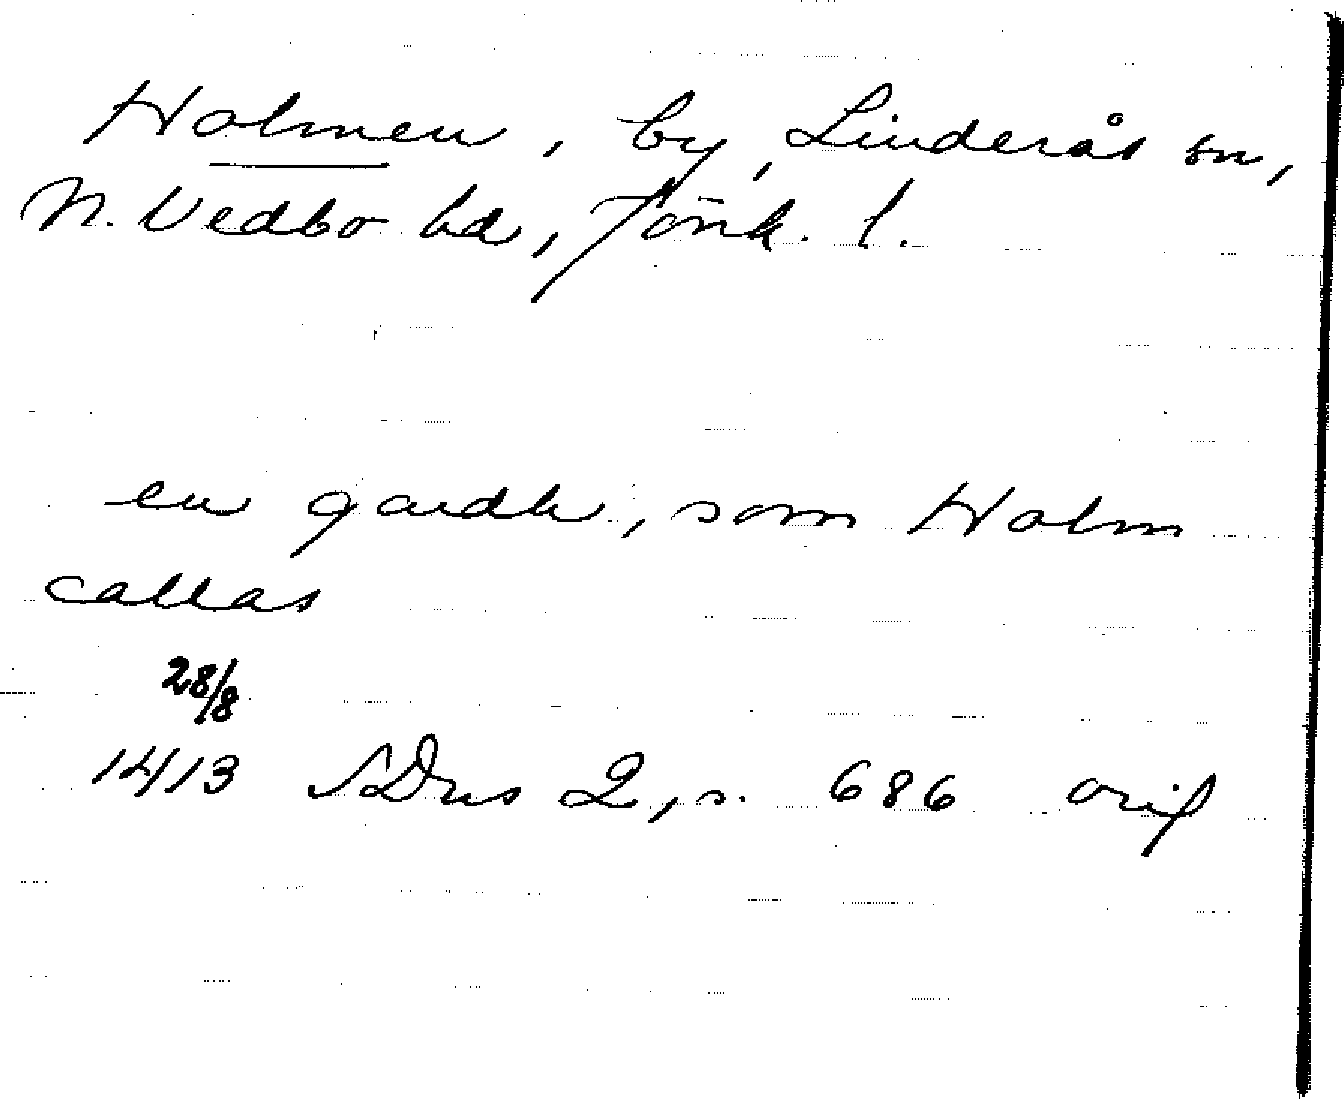 Holmen, by, Linderås sn,
N. Vedbo hd, Jönk. l.
en gardh, som Holm
callas
28/8
1413 SDns 2, s. 686 orig